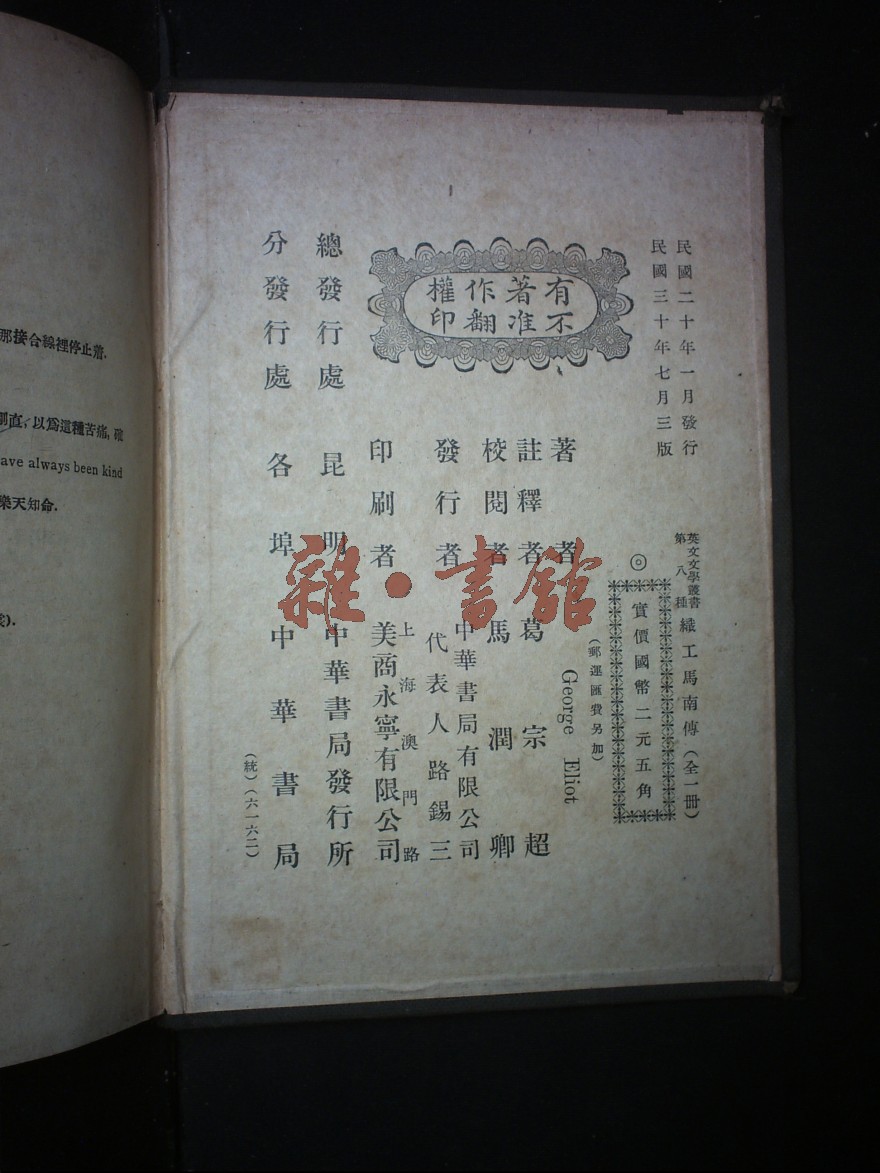 民國二十年一月發行
民國三十年七月三版
英文文學叢書
第八種
織工馬南傳（全一冊）
◎實價國幣二元五角
（郵運匯費另加）
有著作權
不准翻印
著者 George Eliot
註釋者 葛宗超
校閱者 馬潤卿
發行者 中華書局有限公司
代表人路錫三
印刷者 上海澳門路
美商永寧有限公司
總發行處 昆明中華書局發行所
分發行處 各埠中華書局
（統）（六一六二）
雜·書館
那接合線裡停止着.
剛直，以爲這種苦痛，確
ave always been kind
樂天知命.